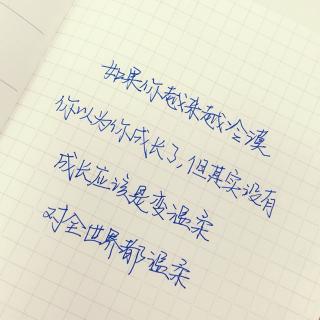 如果你越来越冷漠
你以为你成长了,但其实没有
成长应该是变温柔
对全世界都温柔